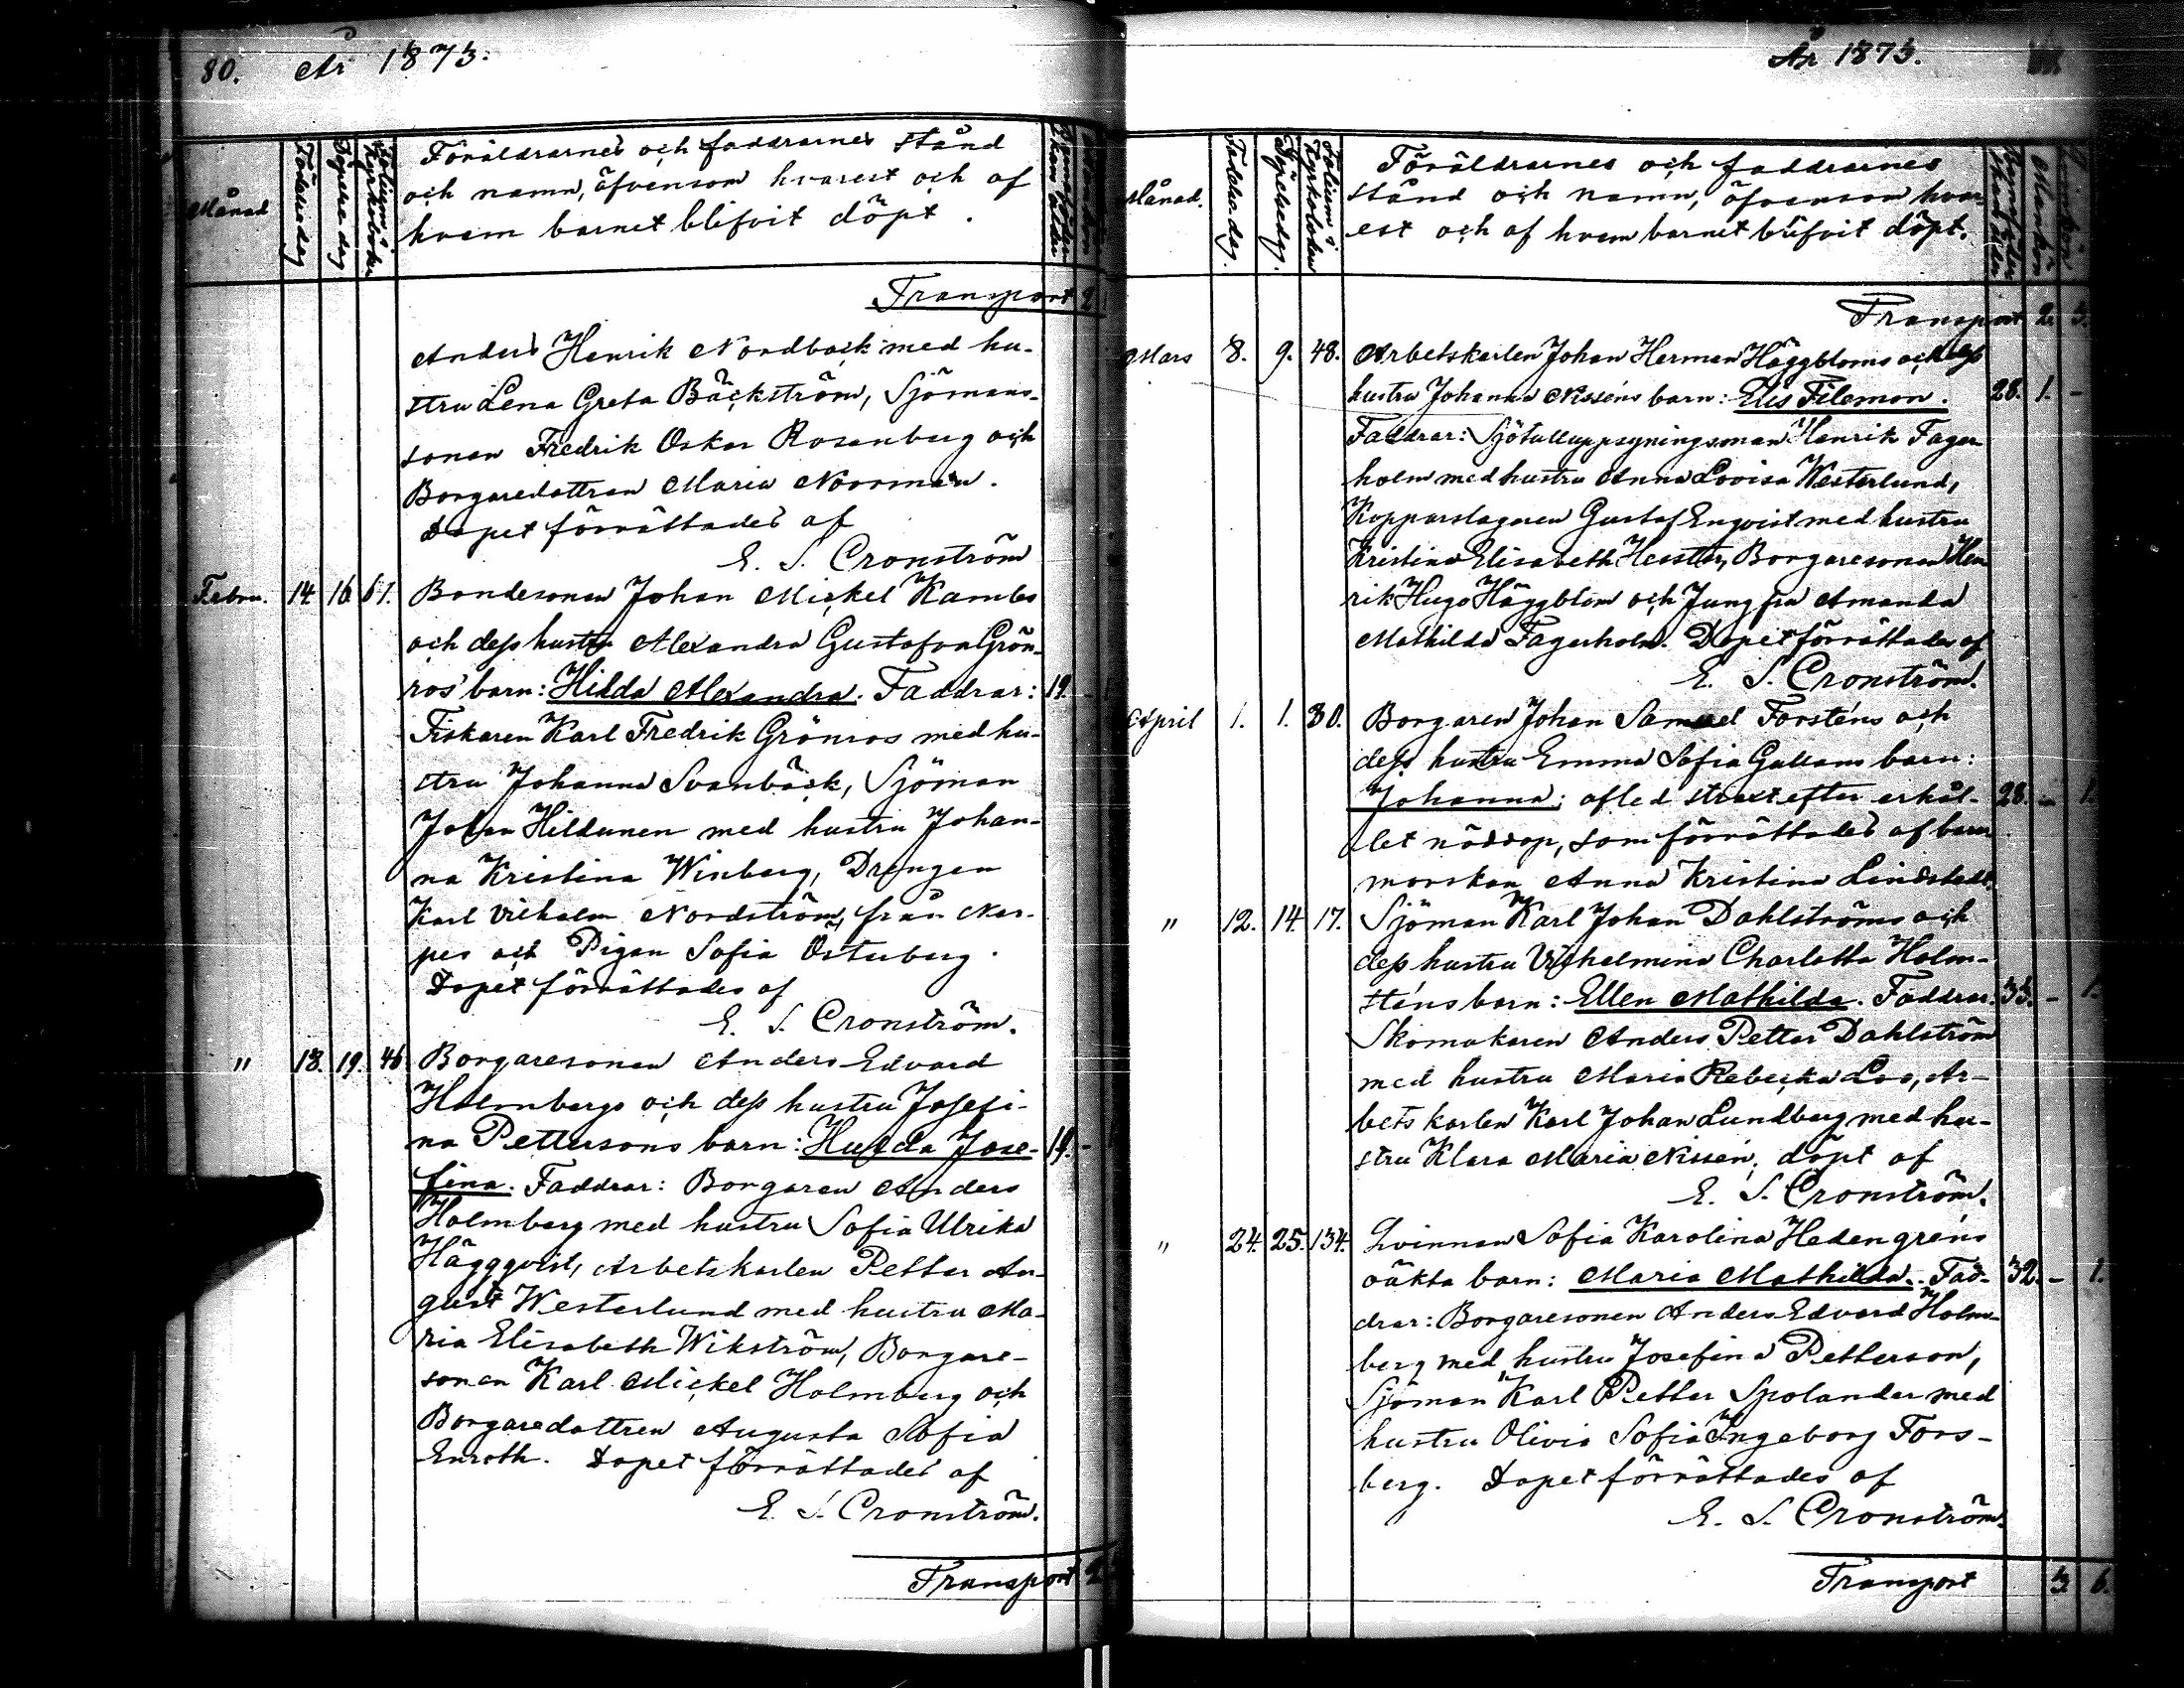 80. År 1873.
Månad
Födelsedag
Döpelsedag
Folium i Kyrkoboken
Föräldrarnes och faddrarnes stånd
och namn, äfvensom hvarest och af
hvem barnet blifvit döpt.
Transport 2.
Anders Henrik Nordback med hu-
stru Lena Greta Bäckström, Sjömans-
sonen Fredrik Oskar Rosenberg och
Borgaredottren Maria Norrmén.
Dopet förrättades af
E. S. Cronström
Febru. 14. 16. 61. Bondesonen Johan Mickel Kambs
och dess hustru Alexandra Gustafva Grön-
ros' barn: Hilda Alexandra. Faddrar: 19. -
Fiskaren Karl Fredrik Grönros med hu-
stru Johanna Svanbäck, Sjöman
Johan Hildunen med hustru Johan-
na Kristina Winberg, Drengen
Karl Vilhelm Nordström, från Ner-
pes och Pigan Sofia Österberg.
Dopet förrättades af
E. S. Cronström.
" 18. 19. 46 Borgaresonen Anders Edvard
Holmbergs och dess hustru Josefi-
na Pettersons barn: Hulda Jose- 19. -
fina. Faddrar: Borgaren Anders
Holmberg med hustru Sofia Ulrika
Häggqvist, Arbetskarlen Petter Au-
gust Westerlund med hustru Ma-
ria Elisabeth Wikström, Borgare-
sonen Karl Mickel Holmberg och
Borgaredottren Augusta Sofia
Enroth. Dopet förrättades af
E. S. Cronström.
Transport 2
År 1873.
Månad.
Födelsedag.
Döpelsedag.
Folium i Kyrkoboken
Föräldrarnes och faddrarnes
stånd och namn, äfvensom hvar-
est och af hvem barnet blifvit döpt.
Mankön
Transport 2. 3.
Mars 8. 9. 48. Arbetskarlen Johan Herman Häggbloms och dess
hustru Johanna Nisséns barn: Elis Filemon. 28. 1. -
Faddrar: Sjötulluppsyningsman Henrik Fager-
holm med hustru Anna Lovisa Westerlund,
Kopparslagaren Gustaf Enqvist med hustru
Kristina Elisabeth Borgaresonen Hen-
rik Hugo Häggblom och Jungfru Amanda
Mathilda Fagerholm. Dopet förrättades af
E. S. Cronström.
April 1. 1. 80. Borgaren Johan Samuel Forsténs och
dess hustru Emma Sofia Gullans barn:
Johanna; afled straxt efter erhål- 28. - 1.
let nöddop, som förrättades af barn-
morskan Anna Kristina Lindstedt.
" 12. 14. 17. Sjöman Karl Johan Dahlströms och
dess hustru Vilhelmina Charlotta Holm-
sténs barn: Ellen Mathilda. Faddrar: 33. - 1.
Skomakaren Anders Petter Dahlström
med hustru Maria Rebecka Loo, Ar-
betskarlen Karl Johan Lundberg med hu-
stru Klara Maria Nissén; döpt af
E. S. Cronström.
" 24. 25. 134. Qvinnan Sofia Karolina Hedengréns
oäkta barn: Maria Mathilda. Fad- 32. - 1.
drar: Borgaresonen Anders Edvard Holm-
berg med hustru Josefina Petterson,
Sjöman Karl Petter Spolander med
hustru Olivia Sofia Ingeborg Fors-
berg. Dopet förrättades af
E. S. Cronström.
Transport 3. 6.